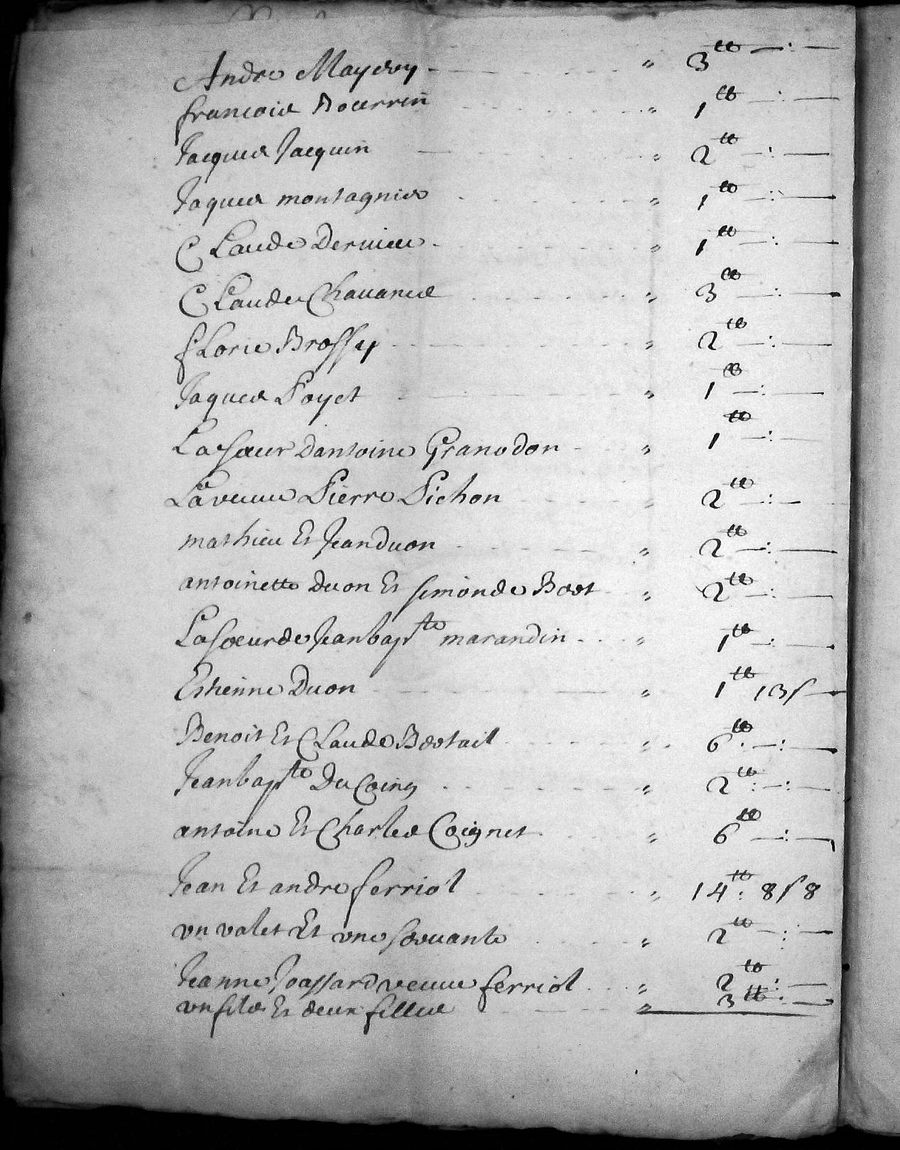 Andre Mayery " 3tt — : —
francois Bourrin " 1tt — : —
Jacques Jacquin " 2tt — : —
Jaques montagnier " 1tt — : —
Claude Dervieu " 1tt — : —
Claude Chavanes " 3tt — : —
florie Brossy " 2tt — : —
Jaques Poyet " 1tt — : —
La soeur dantoine Granodon " 1tt — : —
La veuve Pierre Pichon " 2tt — : —
mathieu Et Jean duon " 2tt — : —
antoinette duon Et Simonde Boot " 2tt — : —
La soeur de Jean bapte marandin " 1tt — : —
Estienne Duon " 1tt 13s —
Benoit Et Claude Bostail " 6tt — : —
Jean bapte Du Coing " 2tt : — : —
antoine Et Charles Coignet " 6tt — : —
Jean Et andre ferriol " 14tt : 8s 8
un valet Et une servante " 2tt — : —
Jeanne Joassard veuve ferriol " 2tt — : —
un fils Et deux filles " 3tt — : —